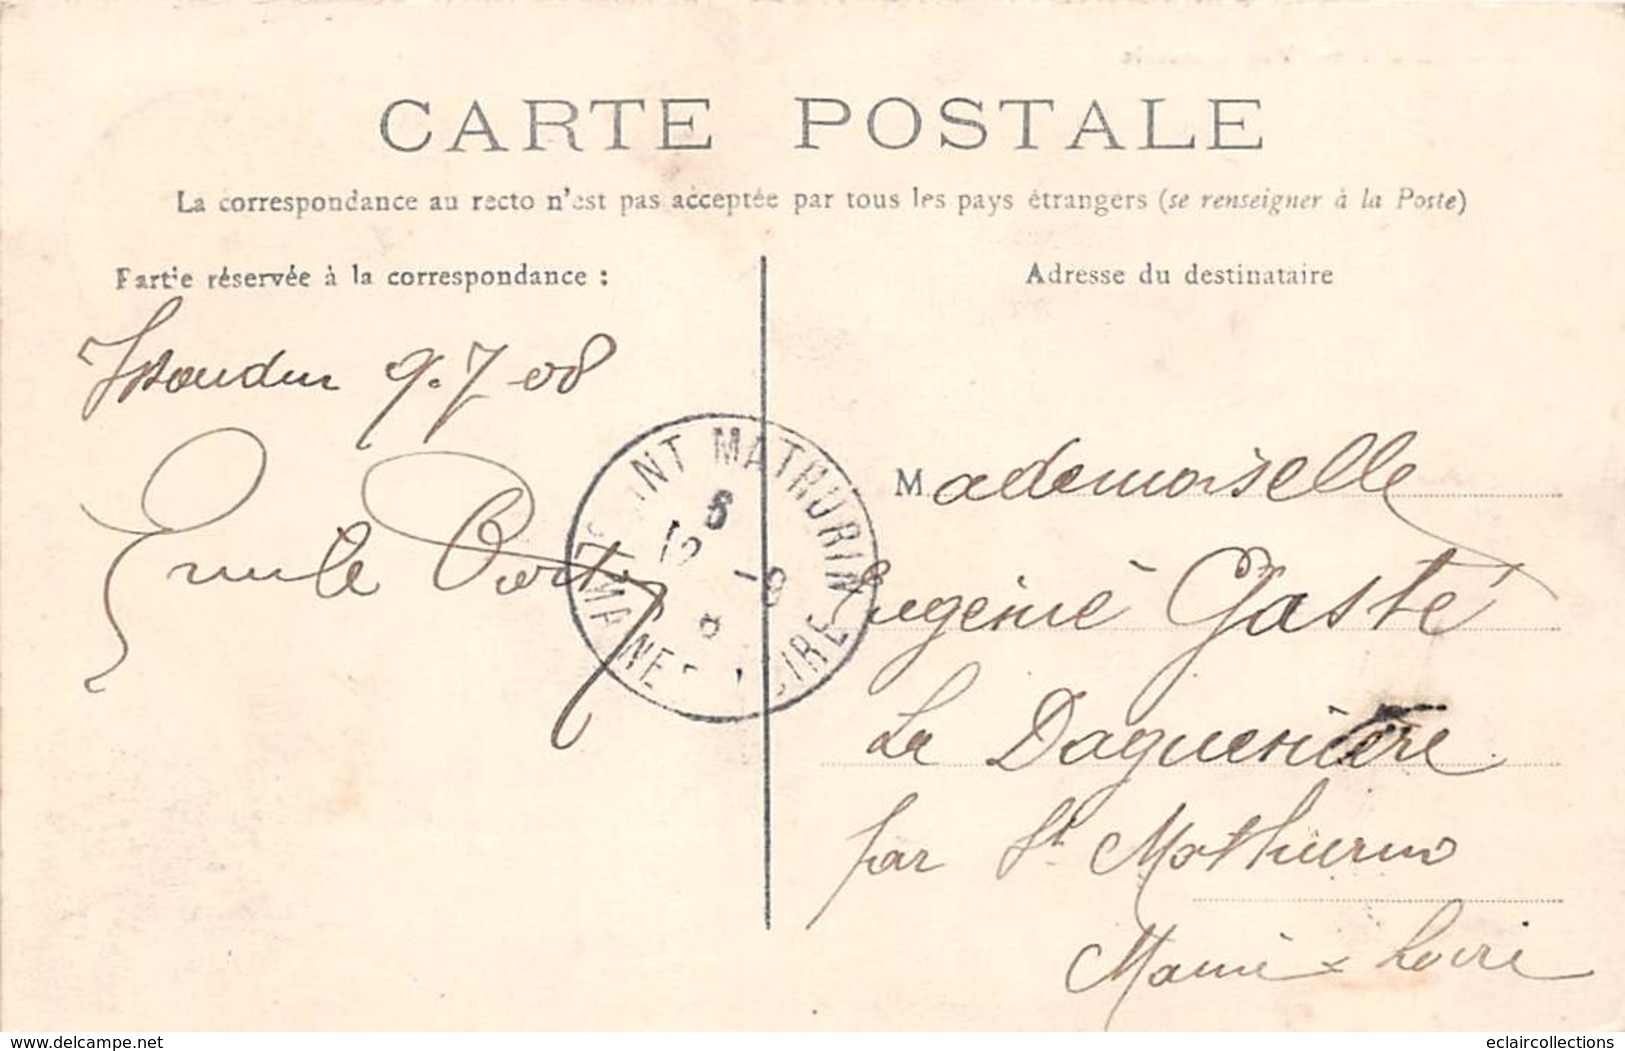 CARTE POSTALE
La correspondance au recto n'est pas acceptée par tous les pays étrangers (se renseigner à la Poste)
Partie réservée à la correspondance :
Adresse du destinataire
Issoudun 9.7-08
Emile
SAINT MATHURIN
MAINE LOIRE
Mademoiselle
Eugénie Gasté
La Daguenière
par St Mathurin
Maine & Loire
delcampe.net
eclaircollections